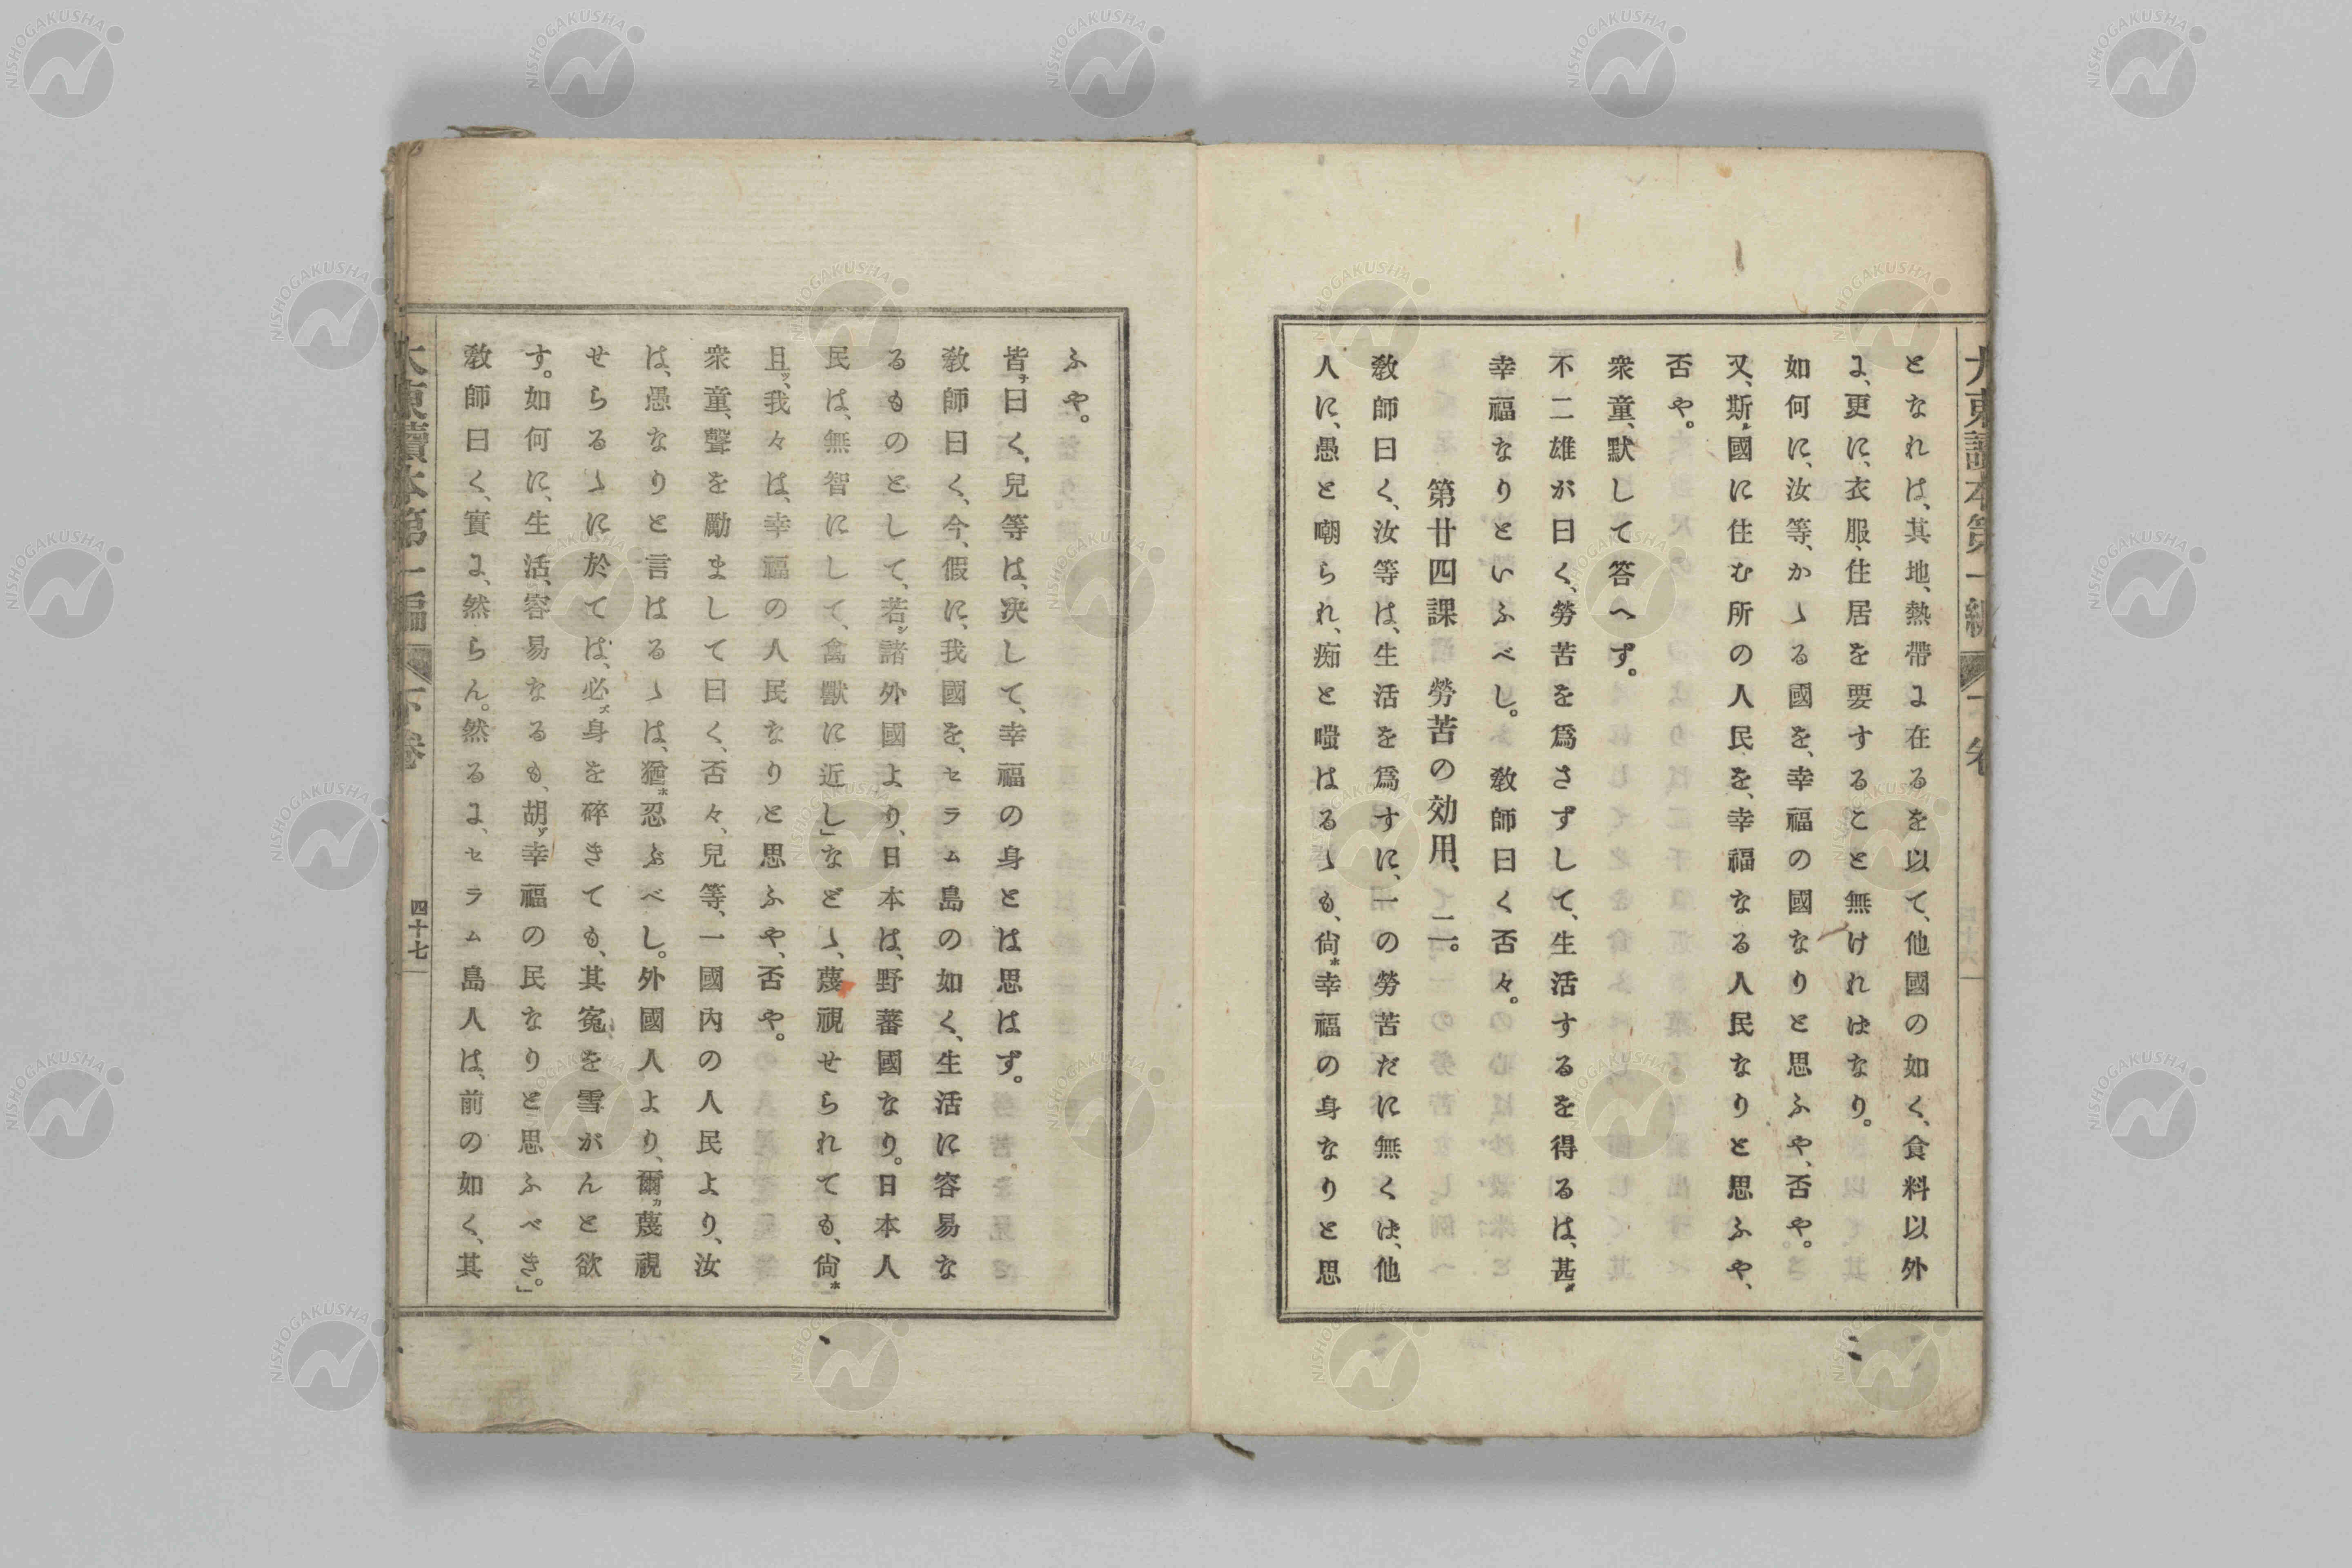 となれば、其地、熱帶に在るを以て、他國の如く、食料以外
に、更に、衣服、住居を要すること無ければなり。
如何に、汝等、かゝる國を、幸福の國なりと思ふや、否や。
又、斯國に住む所の人民を、幸福なる人民なりと思ふや、
否や。
衆童、默して答へず。
不二雄が曰く、勞苦を爲さずして、生活するを得るは、甚
幸福なりといふべし。敎師曰く否々。
第廿四課 勞苦の効用、 二。
敎師曰く、汝等は、生活を爲すに、一の勞苦だに無くは、他
人に、愚と嘲られ、痴と嗤はるゝも、尙ホ幸福の身なりと思
ふや。
皆ナ曰く、兒等は、决して、幸福の身とは思はず。
敎師曰く、今、假に、我國を、セラム島の如く、生活に容易な
るものとして、若シ諸外國より、日本は、野蕃國なり。日本人
民は、無智にして、禽獸に近し」など、蔑視せられても、尙ホ
且ツ、我々は、幸福の人民なりと思ふや、否や。
衆童、聲を勵まして曰く、否々、兒等、一國內の人民より、汝
は、愚なりと言はるゝは、猶ホ忍ぶべし。外國人より、爾カ蔑視
せらるゝに於ては、必ズ身を碎きても、其寃を雪がんと欲
す。如何に、生活、容易なるも、胡ゾ幸福の民なりと思ふべき。」
敎師曰く、實に、然らん。然るに、セラム島人は、前の如く、其
四十七
NISHOGAKUSHA